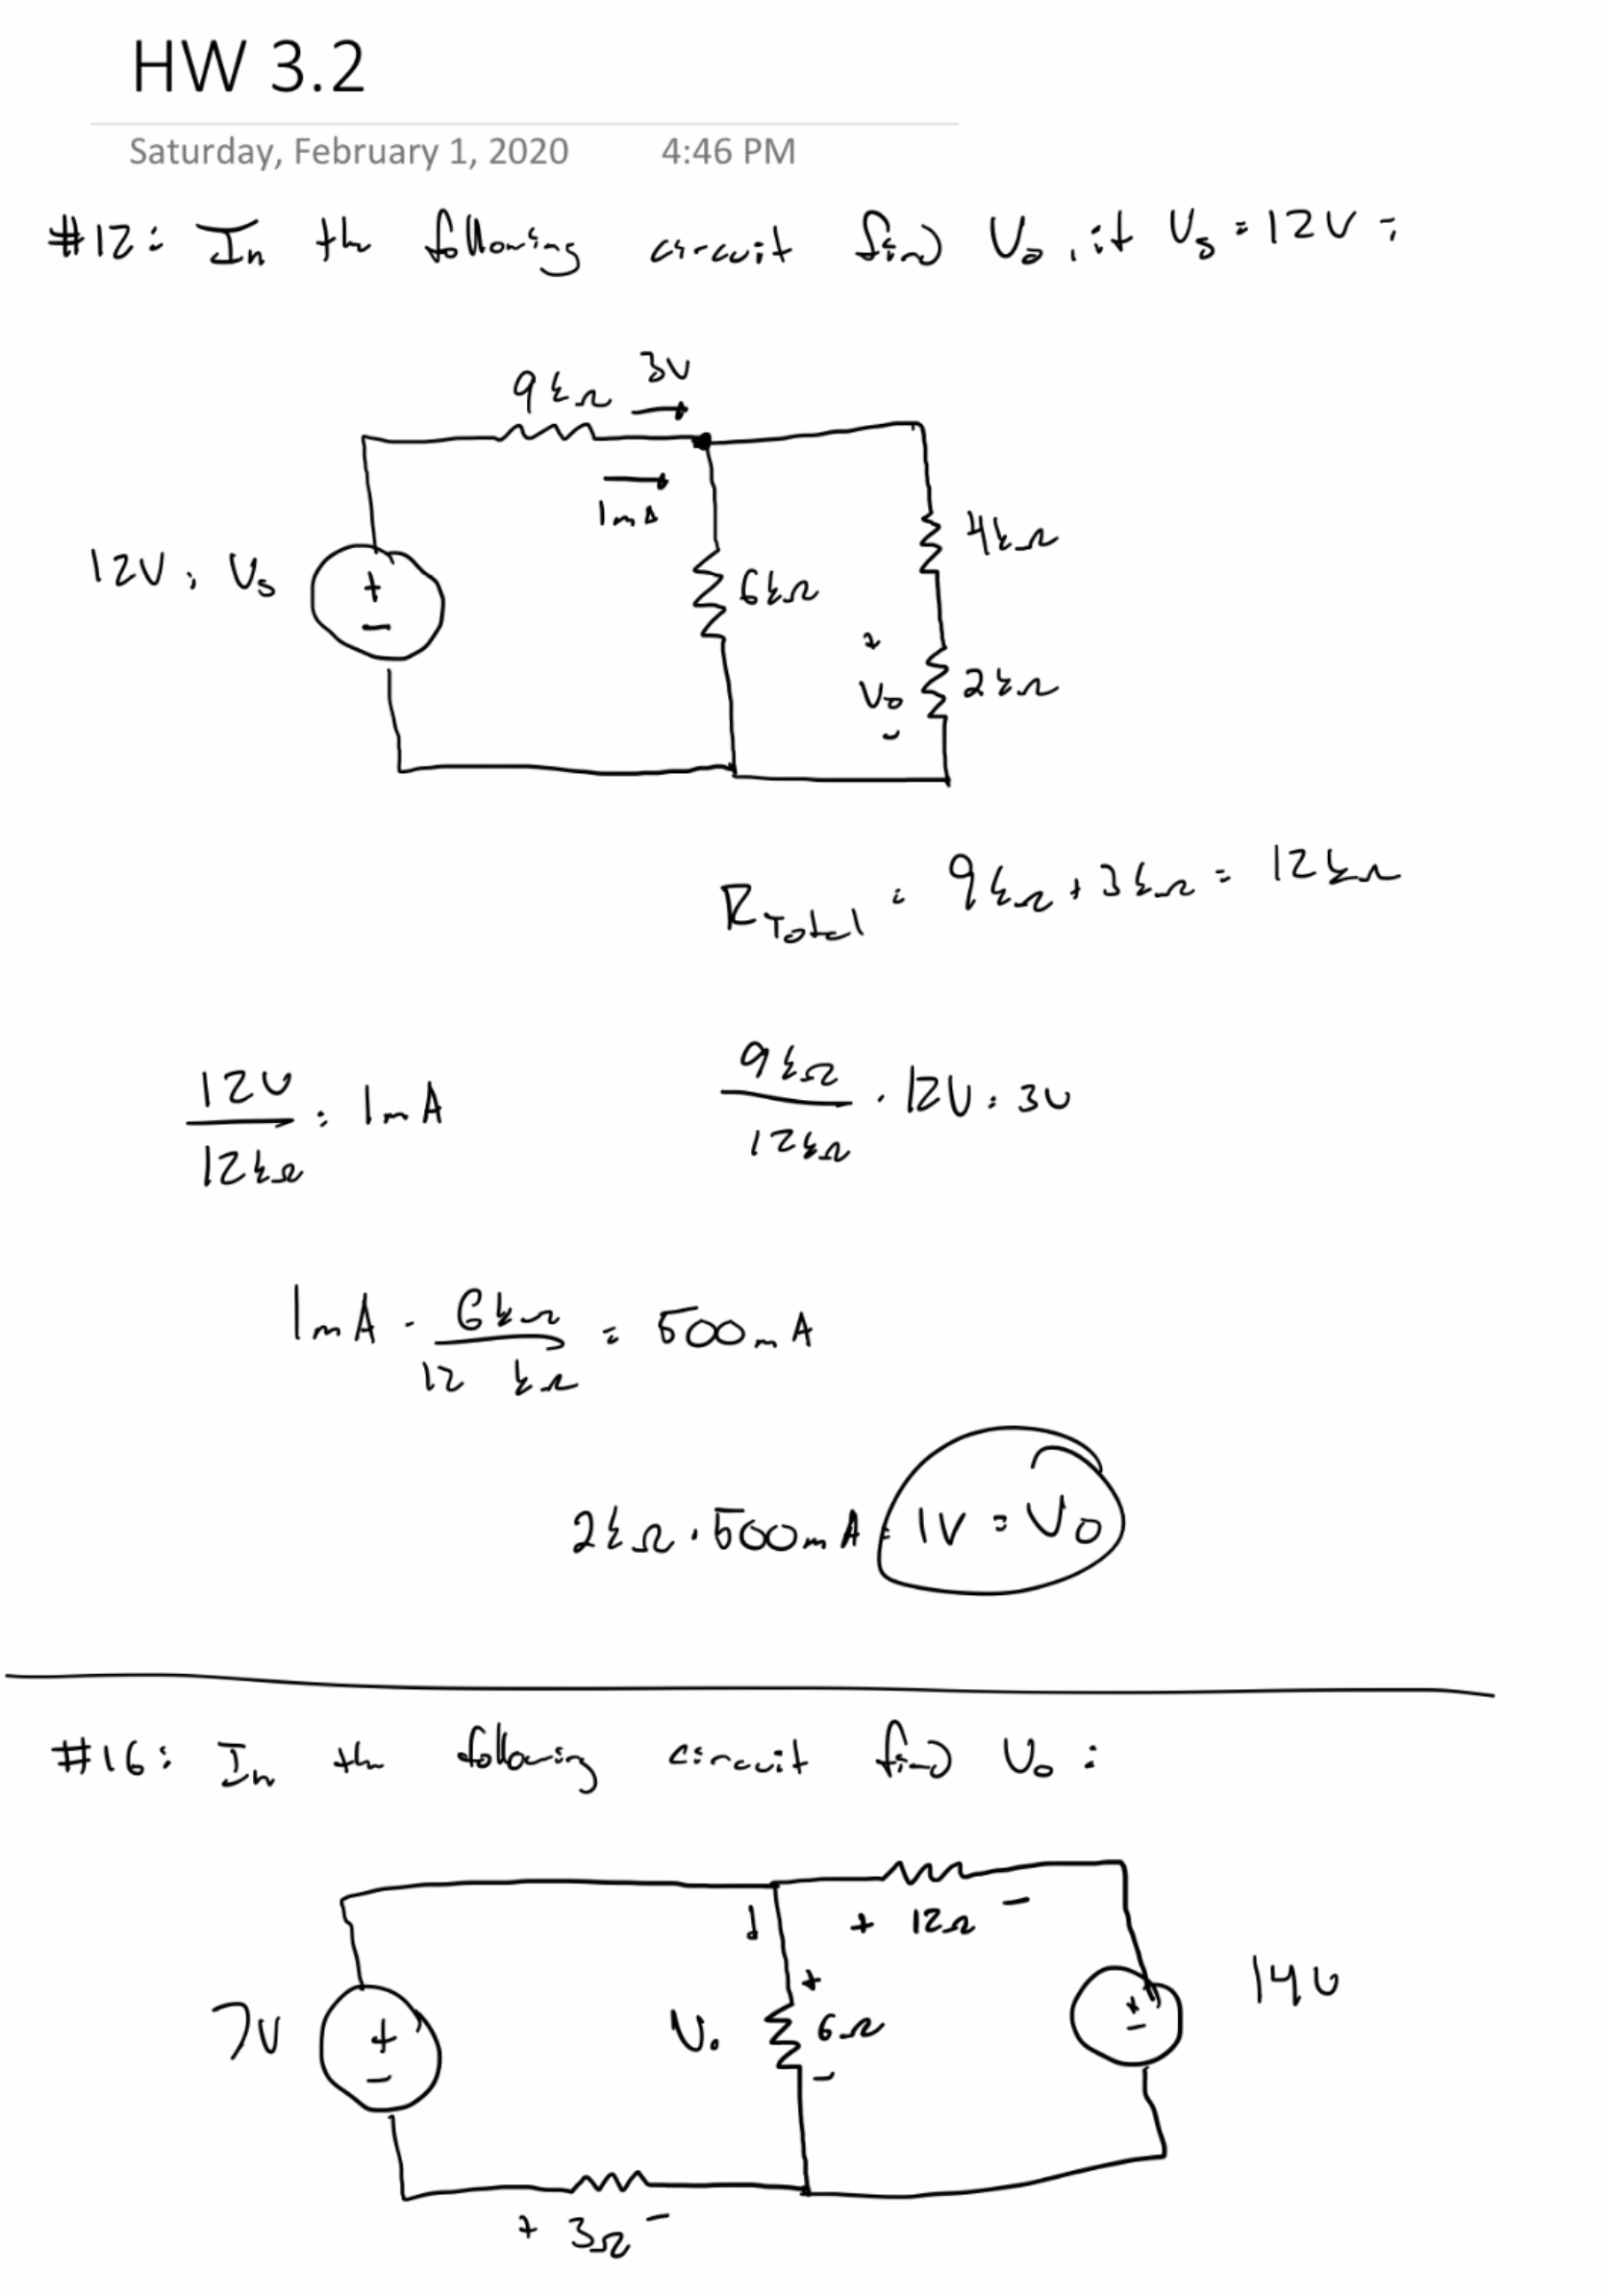 HW 3.2
Saturday, February 1, 2020 4:46 PM
#12: In the following circuit find Vo, if Vs = 12V:
9kΩ 3V
1mA
12V = Vs
+
-
6kΩ
4kΩ
+
Vo
-
2kΩ
RTotal = 9kΩ + 3kΩ = 12kΩ
12V/12kΩ = 1mA
9kΩ/12kΩ · 12V = 3V
1mA · 6kΩ/12 kΩ = 500mA
2kΩ · 500mA = 1V = Vo
#16: In the following circuit find Vo:
+ 12Ω -
7V
+
-
Vo
+
6Ω
-
+
-
14V
+ 3Ω -